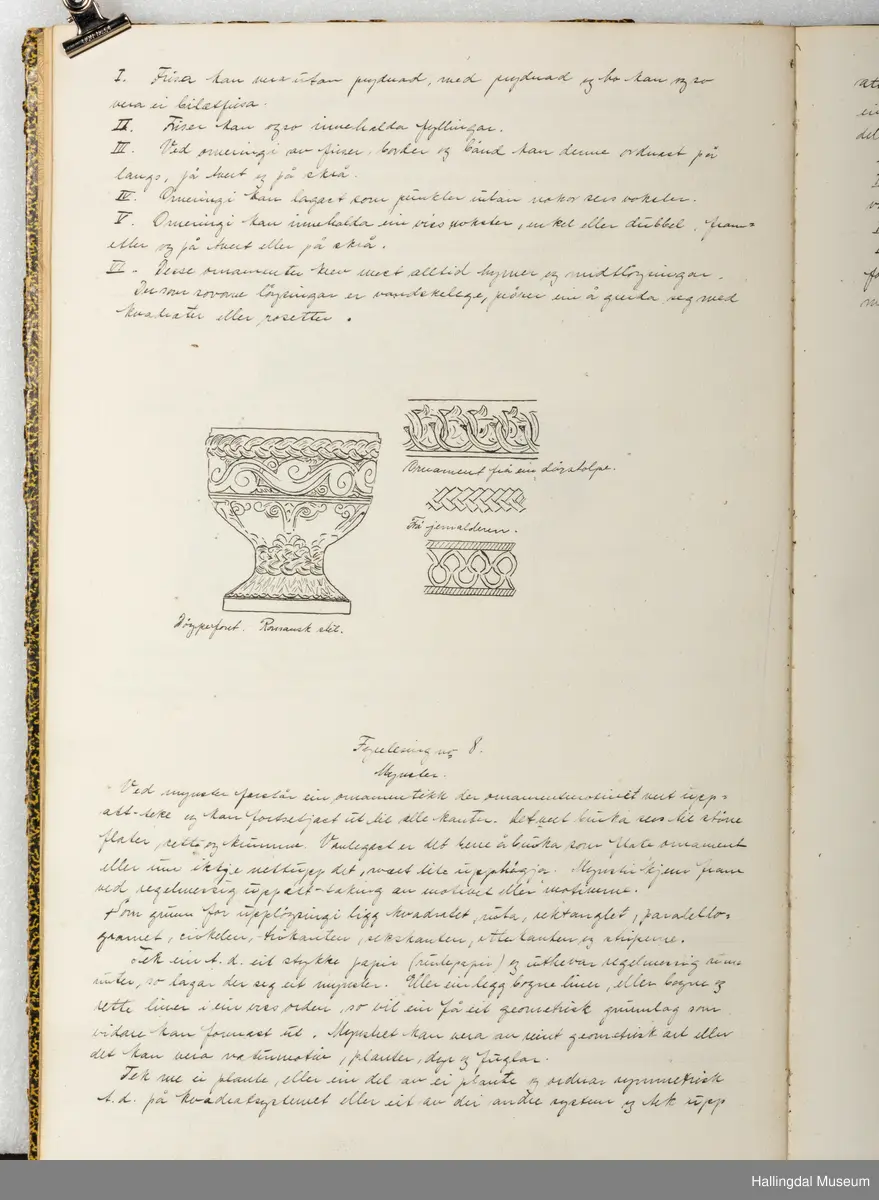 I. Friser kan vera utan prydnad, med prydnad og ho kan og so
vera ei biletfrisa.
II. Friser kan ogso innehalda fyllingar.
III. Ved omeringi av friser, border og bånd kan denne ordnast på
langs, på tvert og på skrå.
IV. Omeringi kan lagast som punkter utan nokor sers vokster.
V. Omeringi kan innehalda ein viss vokster, enkel eller dubbel, fram=
etter og på tvert eller på skrå.
VI. Desse ornamenter krev mest alltid hyrner og midtløysningar.
Der som sovorne løysingar er vandskelege, prøver ein å greida seg med
kvadrater eller rosetter.
Ornament frå ein dørstolpe.
Frå jernalderen.
Døypefont. Romansk stil.
Fyrelesing no 8.
Mynster.
Ved mynster forstår ein ornamentikk der ornamentmotivet vert upp=
att-teke og kan fortsetjast ut til alle kanter. Det vert bruka sers til større
flater, rette og krumme. Vanlegast er det berre å bruka som flate ornament
eller um ikkje nettupp det, svært lite upphøgja. Mynstri kjem fram
ved regelmessig uppatt-taking av motivet eller motiverne.
Som grunn for uppløysingi ligg kvadratet, ruta, rektanglet, paralello-
gramet, cirkelen, trikanten, sekskanten, åttekanten og striperne.
Tek ein t.d. eit stykke papir (rutepapir) og uthevar regelmessig sume
ruter, so lagar der seg eit mynster. Eller ein legg bogne liner, eller bogne og
rette liner i ein viss orden, so vil ein få eit geometrisk grunnlag som
vidare kan formast ut. Mynstret kan vera av reint geometrisk art eller
det kan vera naturmotiv, planter, dyr og fuglar.
Tek me ei plante, eller ein del av ei plante og ordnar symmetrisk
t.d. på kvadratsystemet eller eit av dei andre system og tek upp
Hallingdal Museum